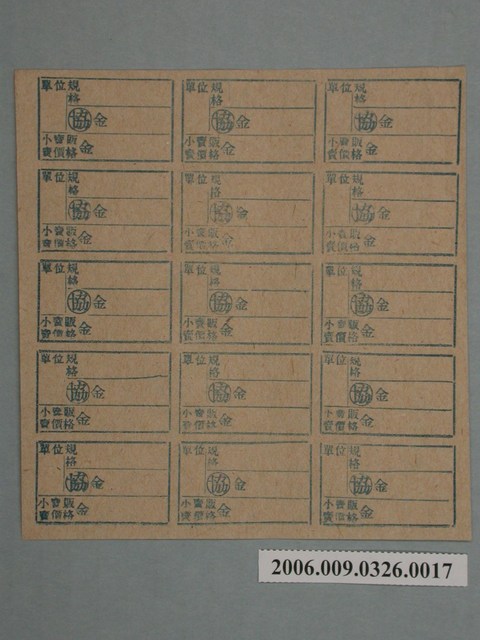 單位規
格
協金
小賣販
賣價格金
單位規
格
協金
小賣販
賣價格金
單位規
格
協金
小賣販
賣價格金
單位規
格
協金
小賣販
賣價格金
單位規
格
協金
小賣販
賣價格金
單位規
格
協金
小賣販
賣價格金
單位規
格
協金
小賣販
賣價格金
單位規
格
協金
小賣販
賣價格金
單位規
格
協金
小賣販
賣價格金
單位規
格
協金
小賣販
賣價格金
單位規
格
協金
小賣販
賣價格金
單位規
格
協金
小賣販
賣價格金
單位規
格
協金
小賣販
賣價格金
單位規
格
協金
小賣販
賣價格金
單位規
格
協金
小賣販
賣價格金
2006.009.0326.0017